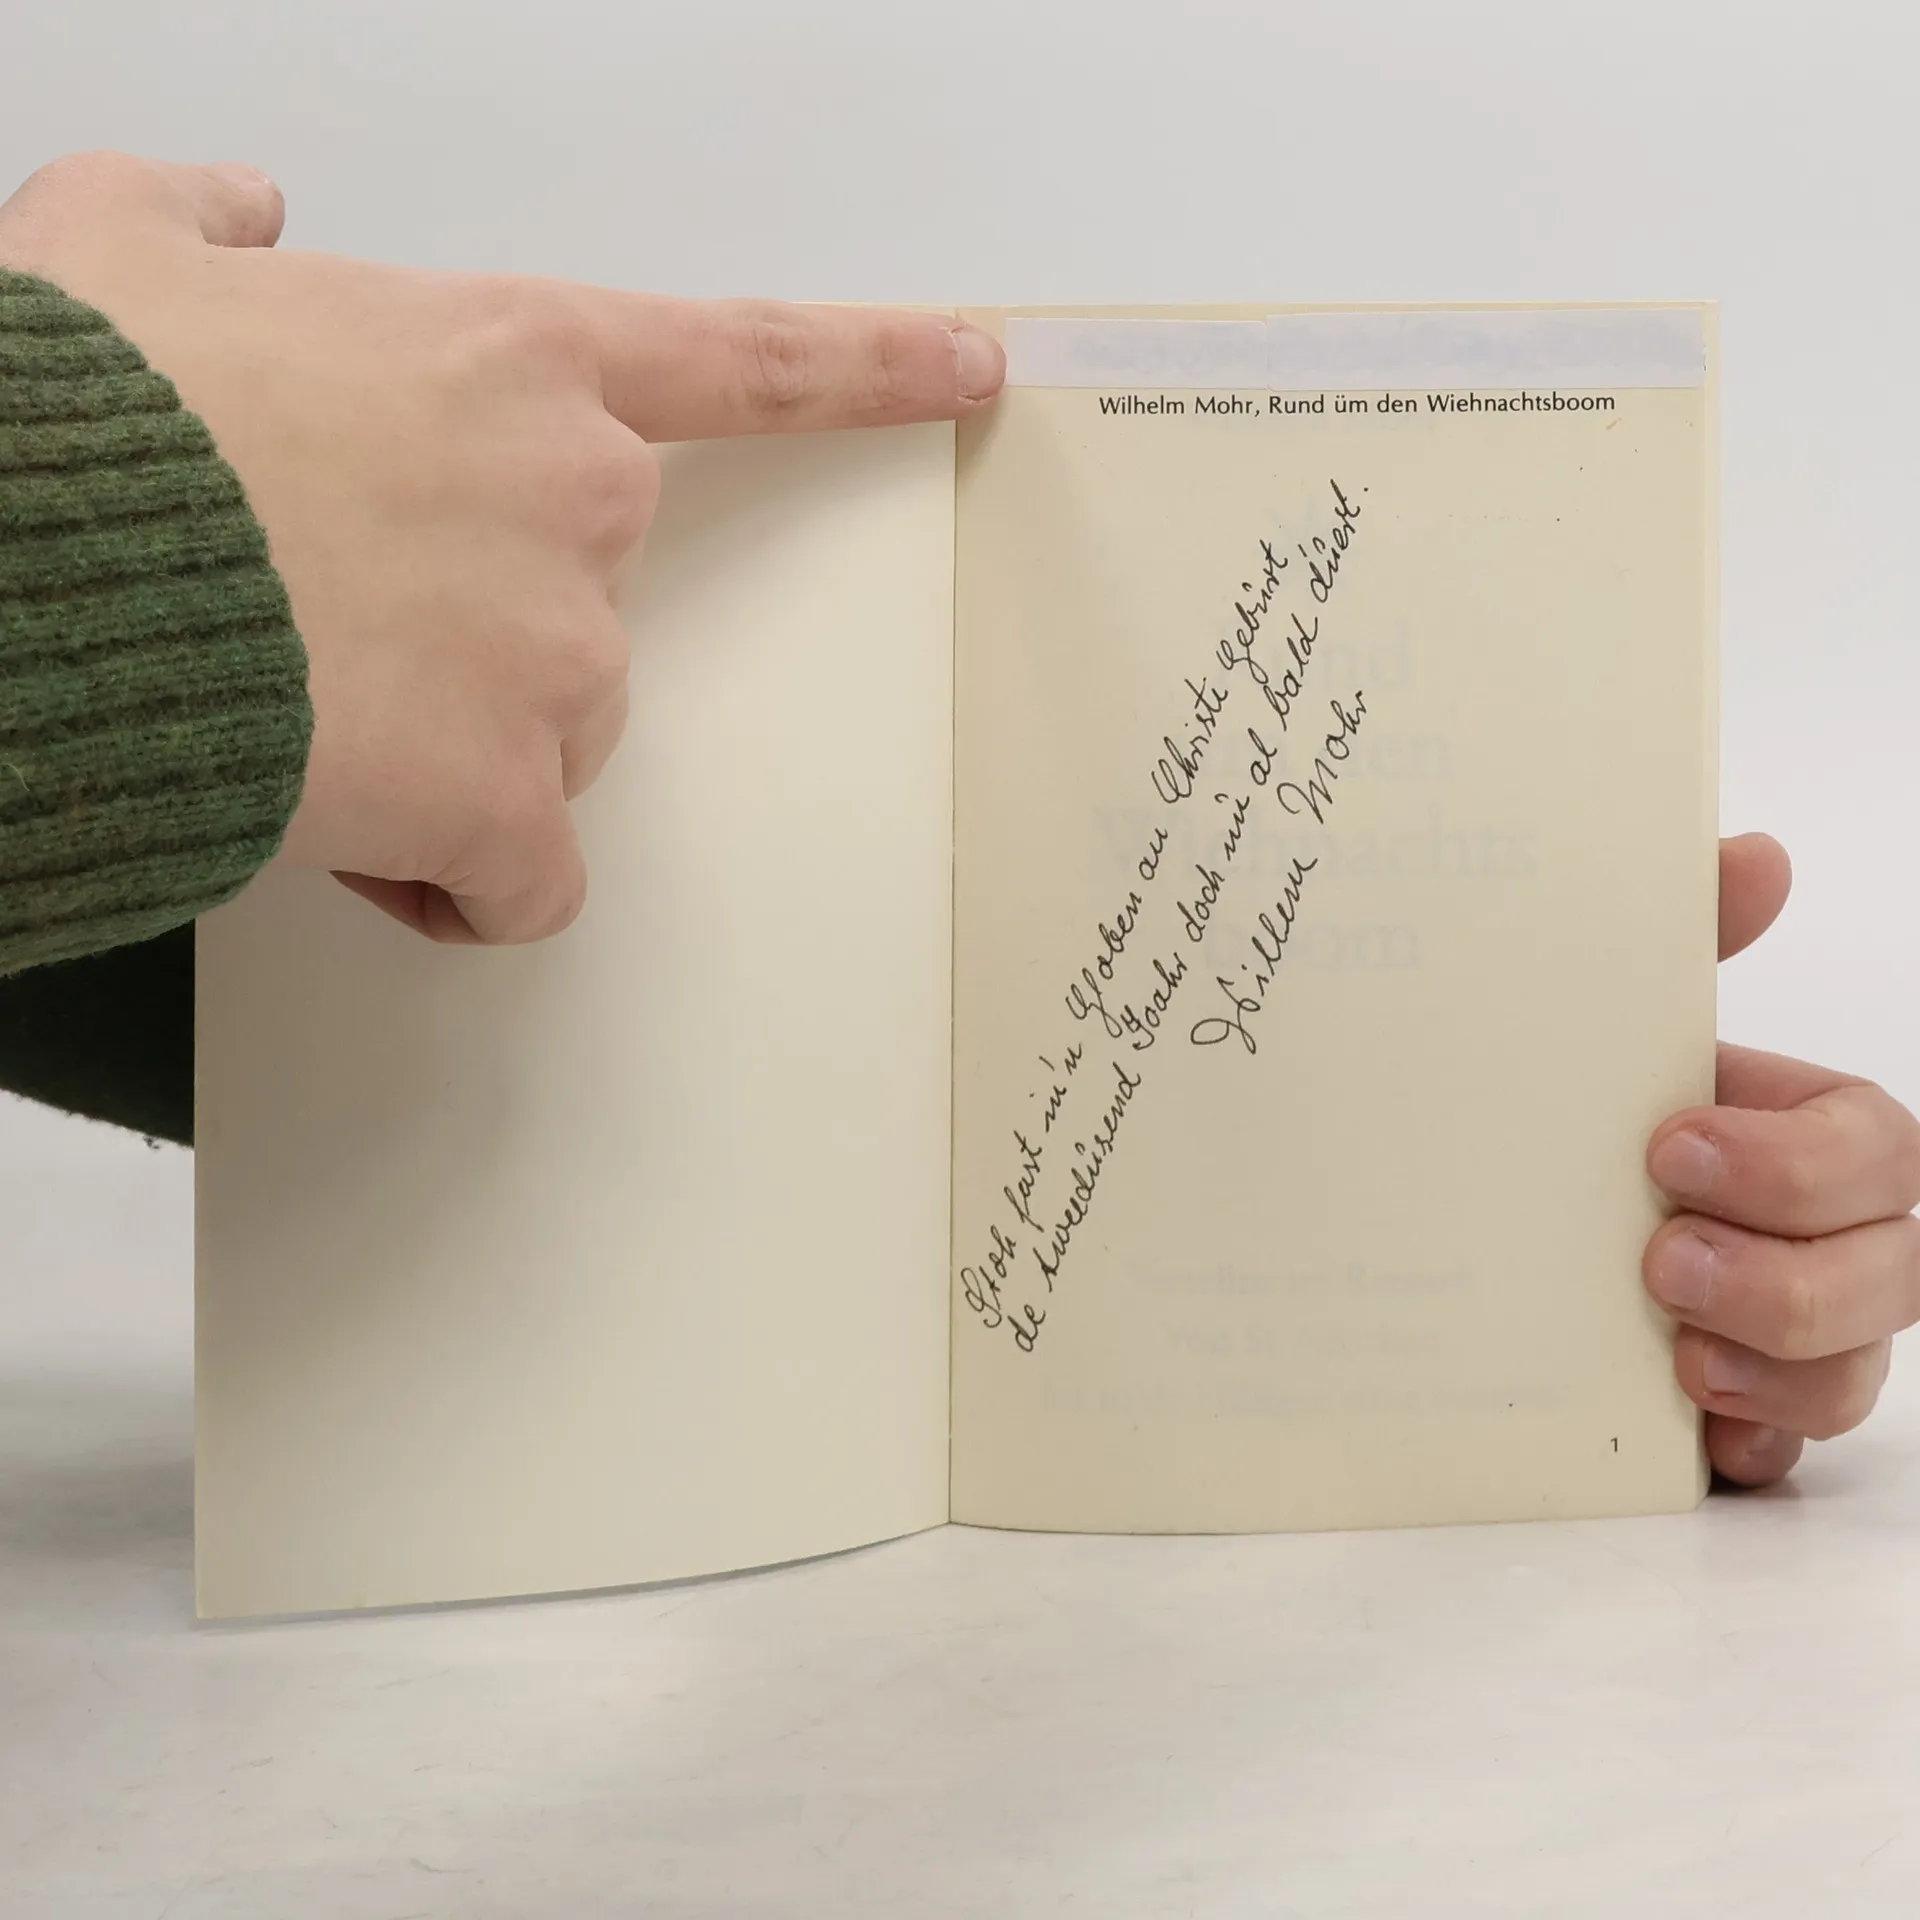 Wilhelm Mohr, Rund üm den Wiehnachtsboom
Stoh fast in'n Globen an Christe Gebürt
de tweedüsend Joahr doch nü al bald düert.
Willem Mohr
1